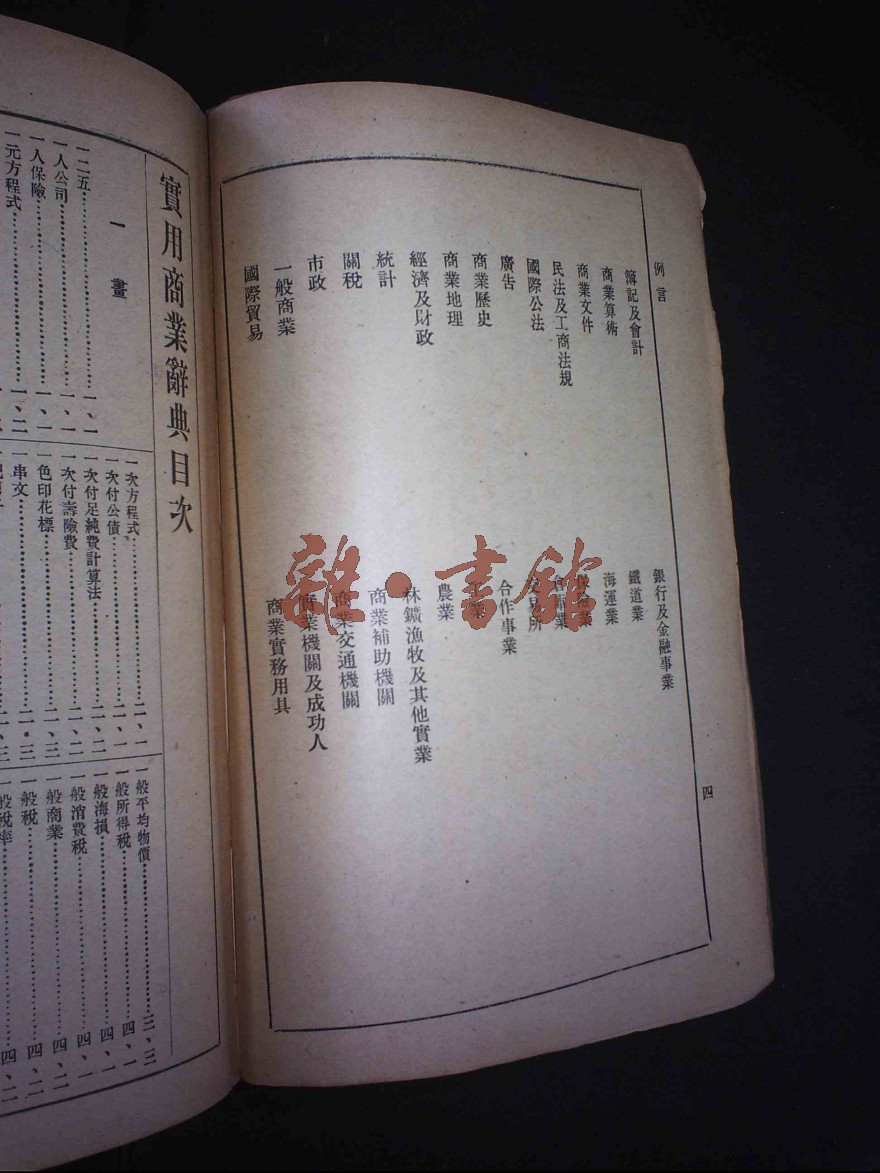 例言
簿記及會計
商業算術
商業文件
民法及工商法規
國際公法
廣告
商業歷史
商業地理
經濟及財政
統計
關稅
市政
一般商業
國際貿易
銀行及金融事業
鐵道業
海運業
交易所
合作事業
農業
林鑛漁牧及其他實業
商業補助機關
商業交通機關
實業機關及成功人
商業實務用具
四
雜·書館
實用商業辭典目次
一畫
一二五……………一、一
一人公司……………一、一
一人保險……………一、一
一元方程式……………一、二
一次方程式……………二、一
一次付公債……………二、一
一次付足純費計算法……………二、二
一次付壽險費……………二、二
一色印花標……………二、三
一串文……………二、三
一般平均物價……………三、三
一般所得稅……………四、一
一般海損……………四、一
一般消費稅……………四、一
一般商業……………四、二
一般稅……………四、二
一般稅率……………四、二